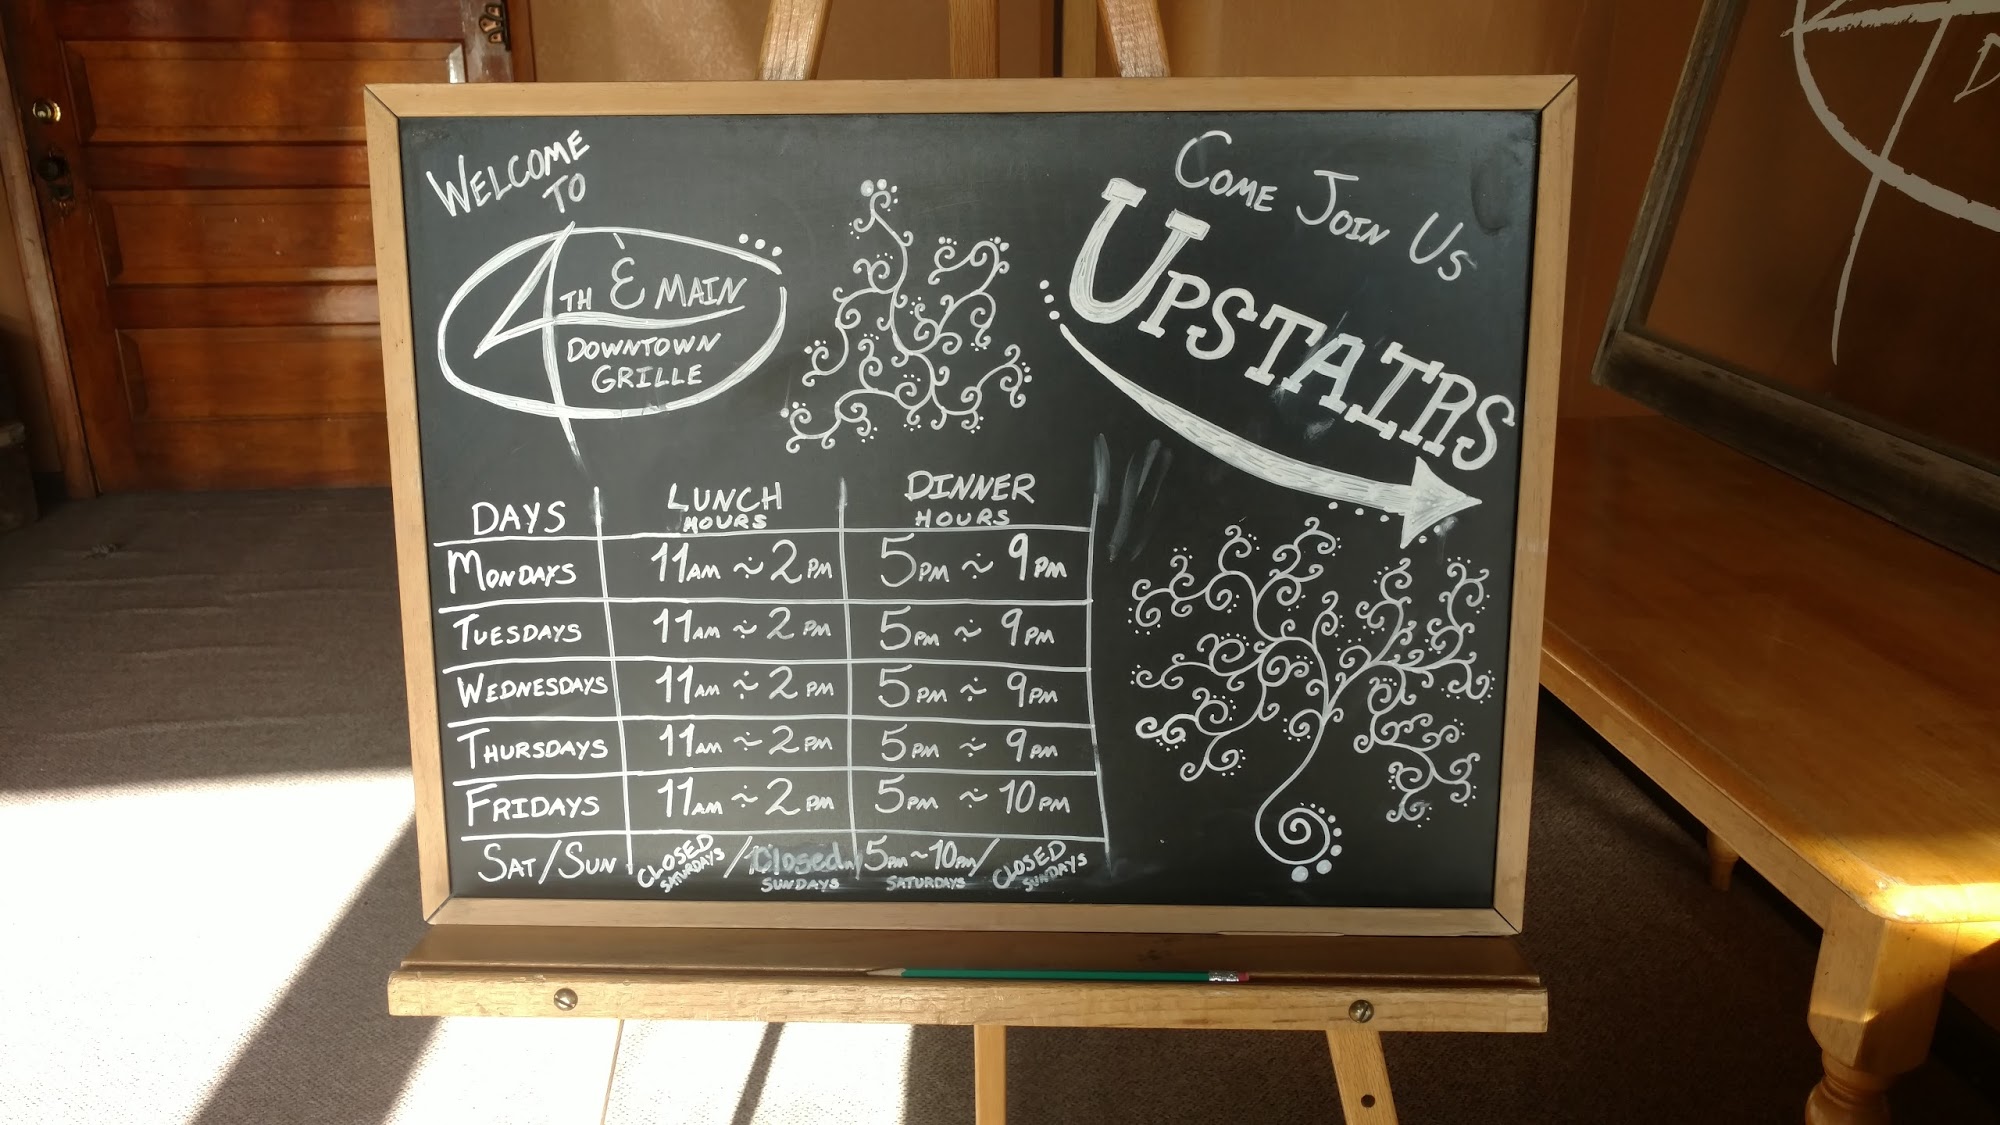 WELCOME
TO
4TH & MAIN
DOWNTOWN
GRILLE
COME JOIN US
UPSTAIRS
DAYS LUNCH HOURS DINNER HOURS
MONDAYS 11AM ~ 2PM 5PM ~ 9PM
TUESDAYS 11AM ~ 2PM 5PM ~ 9PM
WEDNESDAYS 11AM ~ 2PM 5PM ~ 9PM
THURSDAYS 11AM ~ 2PM 5PM ~ 9PM
FRIDAYS 11AM ~ 2PM 5PM ~ 10PM
SAT/SUN CLOSED SATURDAYS / Closed SUNDAYS 5PM ~ 10PM SATURDAYS / CLOSED SUNDAYS